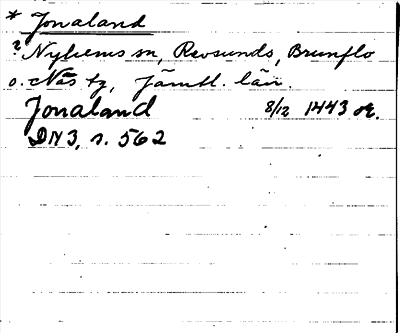 * Jonaland
? Nyhems sn, Revsunds, Brunflo
o. Näs tg, Jämtl. län.
Jonaland 8/12 1443 or.
DN 3, s. 562